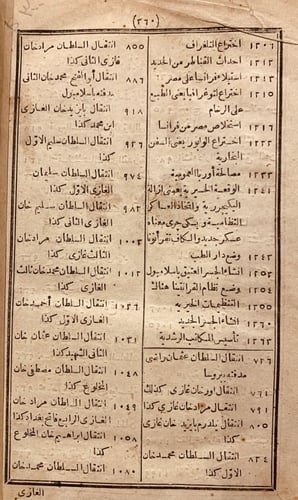 (٣٦٠)
١٢٠٦ اختراع التلغراف
١٢١٢ احداث القناطر من الحديد
١٢١٣ استيلاء فرانسا على مصر
١٢١٥ اختراع لتوغرافيا يعنى الطبع
على الرخام
١٢١٦ استخلاص مصر من فرانسا
١٢٢٢ اختراع الوابور يعنى السفن
البخارية
١٢٣٣ مصالحة أوربا العمومية
١٢٤١ الوقعة الخيرية يعنى ازالة
اليكيجرية واتخاذ العساكر
النظامية
عسكر جديد والكاف تقرأ نونا
١٢٤٢ وضع دار الطب
١٢٥٢ انشاء الجسر العتيق باسلامبول
١٢٥٤ وضع نظام القرانتينا هنالك
١٢٥٥ التنظيمات الخيرية
١٢٦٠ انشاء الجسر الجديد
١٢٦٣ تأسيس المكاتب الرشدية
٧٢٦ انتقال السلطان عثمان راضى
مدفنه بروسا
٧٦٤ انتقال اورخان غازى كذلك
٧٩١ انتقال مراد خان غازى كذا
٨٠٥ انتقال يلدرم بايزيد خان غازى
كذا
٨٢٤ انتقال السلطان محمد خان
الاول كذا
٨٥٥ انتقال السلطان مراد خان
غازى الثانى كذا
٨٨٦ انتقال أبو الفتح محمد خان الثانى
مدفنه اسلامبول
٩١٨ انتقال بايزيد خان الغازى
ابن محمد كذا
٩٢٦ انتقال السلطان سليم الاول
كذا
٩٧٤ انتقال السلطان سليمان
الغازى الاول كذا
٩٨٢ انتقال السلطان سليم خان
الغازى الثانى كذا
١٠٠٣ انتقال السلطان مراد خان
الثالث غازى كذا
١٠١٢ انتقال السلطان محمد خان ثالث
الغازى كذا
١٠٢٦ انتقال السلطان أحمد خان
الغازى الاول كذا
١٠٣١ انتقال السلطان عثمان خان
الثانى الشهيد كذا
١٠٤٨ انتقال السلطان مصطفى خان
المخلوع كذا
١٠٤٩ انتقال السلطان مراد خان
الغازى الرابع فاتح بغداد كذا
١٠٥٨ انتقال ابراهيم خان المخلوع
كذا
١٠٨٠ انتقال السلطان محمد خان
الغازى